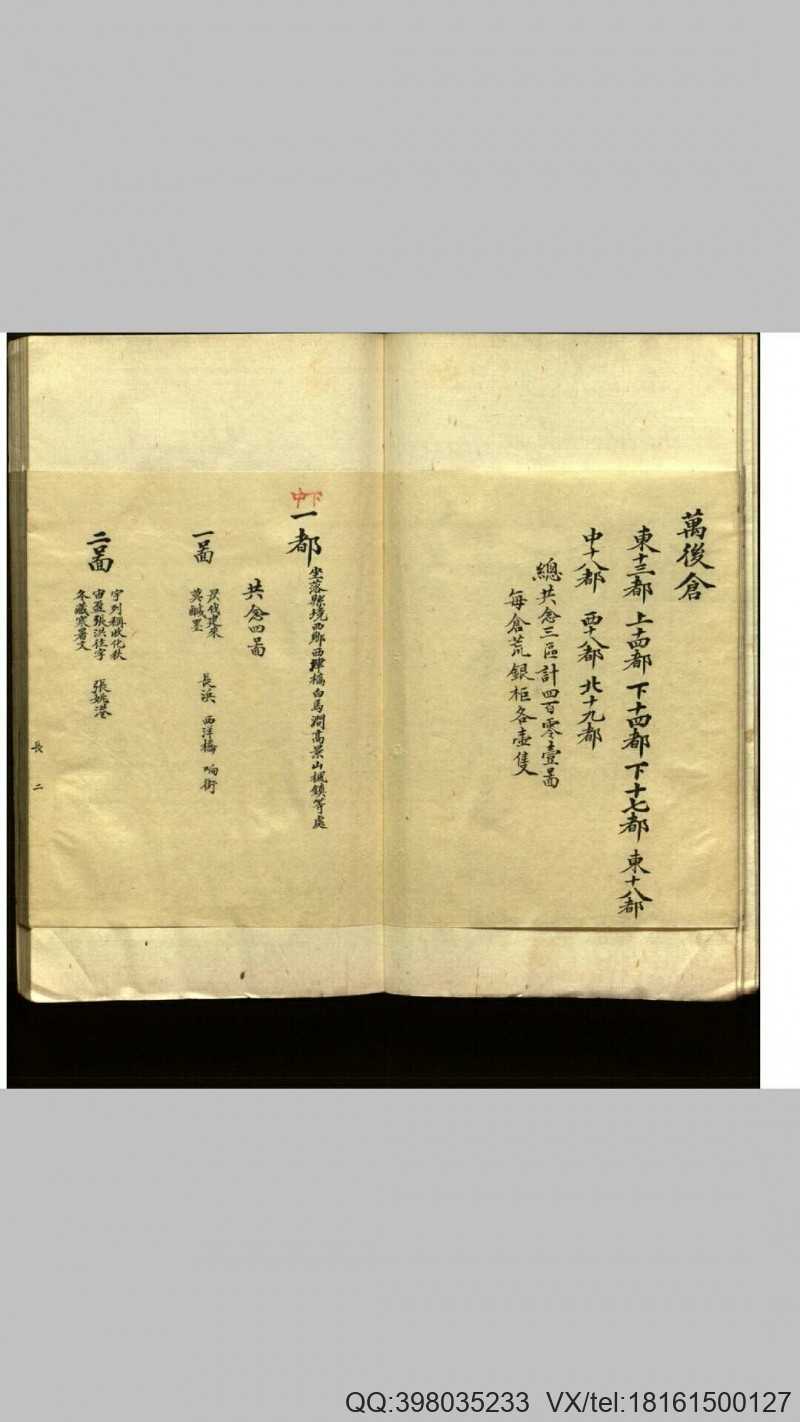 萬後倉
東十三都 上十四都 下十四都 下十七都 東十八都
中十八都 西十八都 北十九都
總共念三區計四百零壹啚
每倉荒銀柜各壺隻
中下
一都 坐落縣境西鄉西津橋白馬澗高景山楓鎮等處
共念四啚
一啚
長浜 西洋橋
二啚
宇列稱收化秋
宙盈張洪往字
冬藏寒暑文
張姚港
長 二
QQ:398035233 VX/tel:18161500127